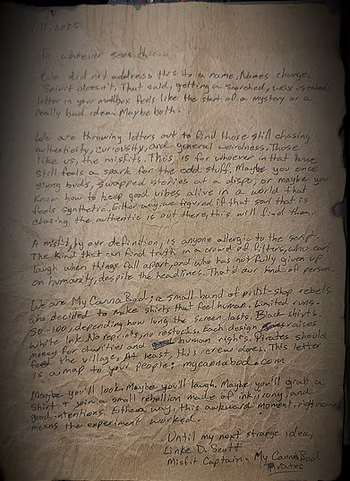 11, 2025
to whoever sees this...
We did not address this to a name. Names change.
Spirit doesn't. That said, getting a scorched, wax-sealed
letter in your mailbox feels like the start of a mystery or a
really bad idea. Maybe both.
We are throwing letters out to find those still chasing
authenticity, curiosity, and general weirdness. Those
like us, the misfits. This is for whoever in that house
still feels a spark for the odd stuff. Maybe you once
slung buds, swapped stories at a dispo, or maybe you
know how to keep good vibes alive in a world that
feels synthetic. Either way, we figured if that soul that is
chasing the authentic is out there, this will find them.
A misfit, by our definition, is anyone allergic to the script.
The kind that can find truth in a crowd of filters, who can
laugh when things fall apart, and who has not fully given up
on humanity, despite the headlines. That's our kind of person.
We are My CannaBod; a small band of print-shop rebels
who decided to make shirts that feel human. Limited runs.
50-100, depending how long the screen lasts. Black shirts.
White ink. No reprints, no restocks. Each design raises
money for charities and human rights. Pirates should
feed the village. At least, this crew does. This letter
is a map to your people: mycannabod.com
Maybe you'll look. Maybe you'll laugh. Maybe you'll grab a
shirt & join a small rebellion made of ink, irony, and
good intentions. Either way, this awkward moment, right now,
means the experiment worked.
Until my next strange idea,
Linke D. Scutt
Misfit Captain, My CannaBod
Pirates